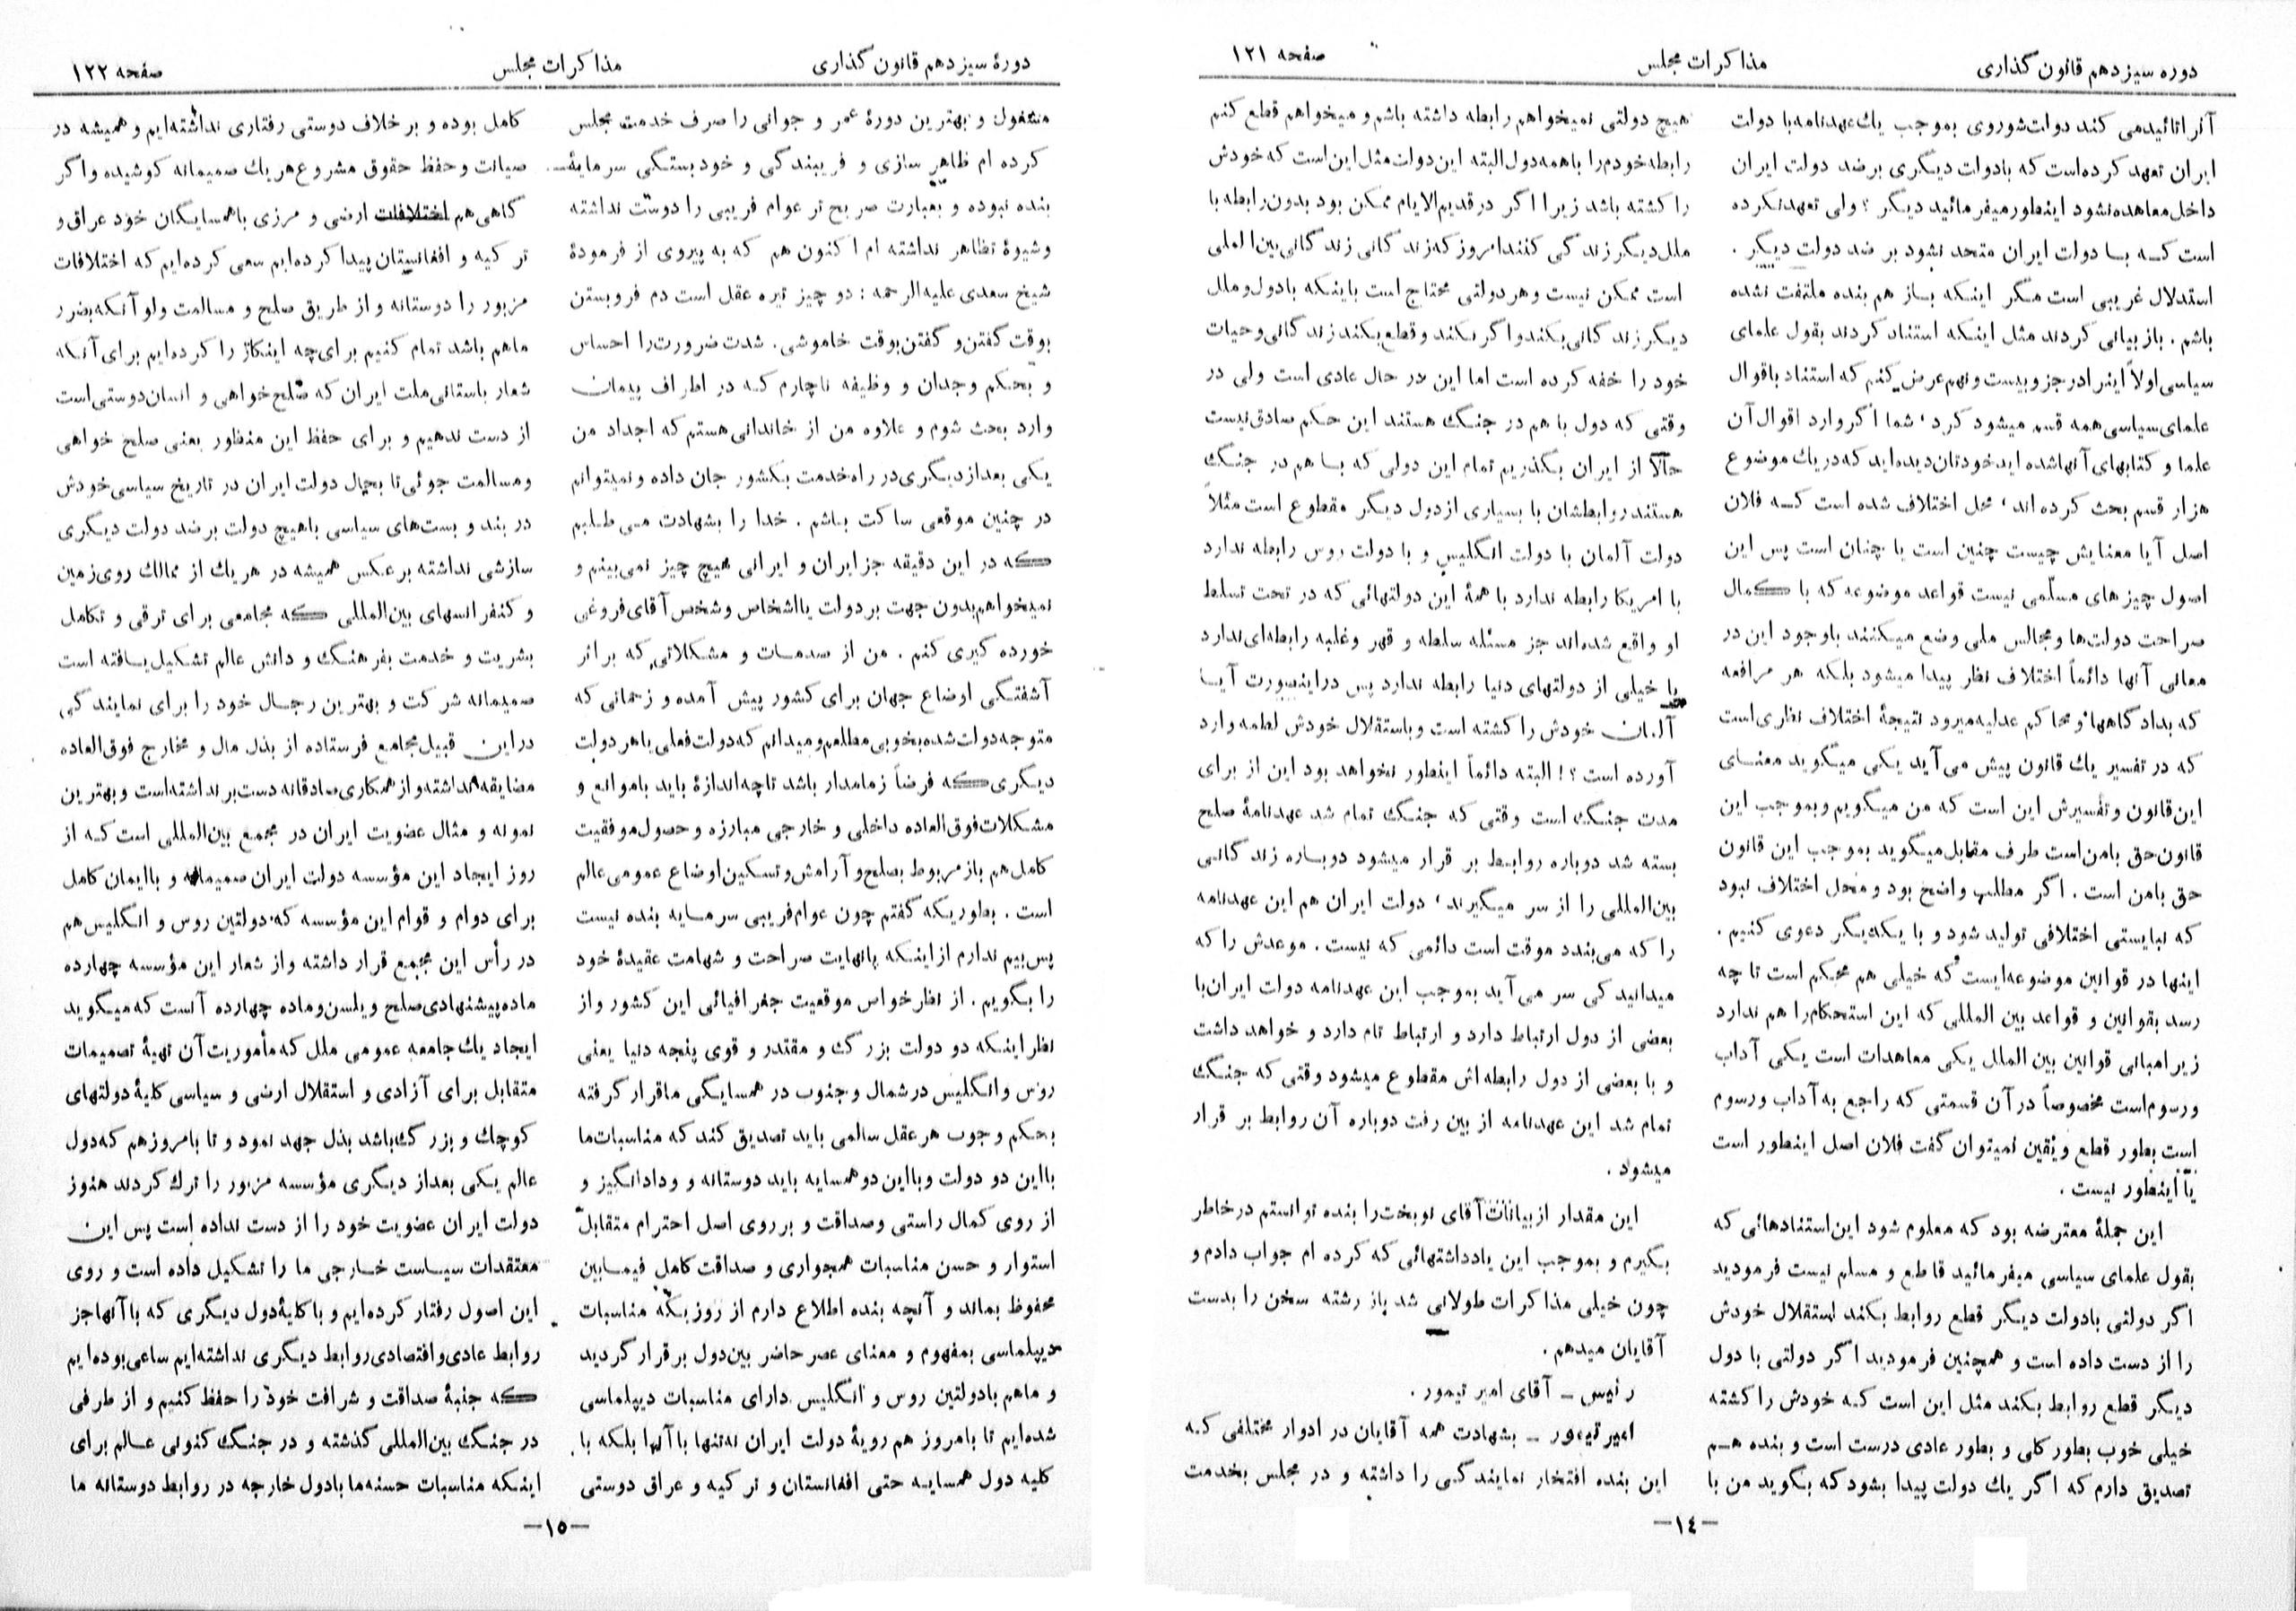 دوره سیزدهم قانون گذاری
مذاکرات مجلس
صفحه ۱۲۱
آنرا تائید می کند دولت شوروی بموجب یك عهدنامه با دولت
ایران تعهد کرده است که با دولت دیگری بر ضد دولت ایران
داخل معاهده نشود اینطور میفرمائید دیگر ؟ ولی تعهد نکرده
است که با دولت ایران متحد نشود بر ضد دولت دیگر .
استدلال غریبی است مگر اینکه باز هم بنده ملتفت نشده
باشم . باز بیانی کردند مثل اینکه استناد کردند بقول علمای
سیاسی اولاً اینرا در جزو بیست و نهم عرض کنم که استناد باقوال
علمای سیاسی همه قسم میشود کرد، شما اگر وارد اقوال آن
علما و کتابهای آنها شده اید خودتان دیده اید که در یك موضوع
هزار قسم بحث کرده اند، محل اختلاف شده است که فلان
اصل آیا معنایش چیست چنین است یا چنان است پس این
اصول چیزهای مسلّمی نیست قواعد موضوعه که با کمال
صراحت دولت‌ها و مجالس ملی وضع میکنند باوجود این در
معانی آنها دائماً اختلاف نظر پیدا میشود بلکه هر مرافعه
که بداد گاهها و محاکم عدلیه میرود نتیجهٔ اختلاف نظری است
که در تفسیر یك قانون پیش می آید یکی میگوید معنای
این قانون و تفسیرش این است که من میگویم و بموجب این
قانون حق بامن است طرف مقابل میگوید بموجب این قانون
حق بامن است . اگر مطلب واضح بود و محل اختلاف نبود
که نبایستی اختلافی تولید شود و با یکدیگر دعوی کنیم .
اینها در قوانین موضوعه ایست که خیلی هم محکم است تا چه
رسد بقوانین و قواعد بین المللی که این استحکام را هم ندارد
زیرا مبانی قوانین بین الملل یکی معاهدات است یکی آداب
و رسوم است مخصوصاً در آن قسمتی که راجع به آداب و رسوم
است بطور قطع و یقین نمیتوان گفت فلان اصل اینطور است
یا اینطور نیست .
این جملهٔ معترضه بود که معلوم شود این استنادهائی که
بقول علمای سیاسی میفرمائید قاطع و مسلم نیست فرمودید
اگر دولتی با دولت دیگر قطع روابط بکند استقلال خودش
را از دست داده است و همچنین فرمودید اگر دولتی با دول
دیگر قطع روابط بکند مثل این است که خودش را کشته
خیلی خوب بطور کلی و بطور عادی درست است و بنده هم
تصدیق دارم که اگر یك دولت پیدا بشود که بگوید من با
هیچ دولتی نمیخواهم رابطه داشته باشم و میخواهم قطع کنم
رابطه خودم را با همه دول البته این دولت مثل این است که خودش
را کشته باشد زیرا اگر در قدیم الایام ممکن بود بدون رابطه با
ملل دیگر زندگی کنند امروز که زندگانی زندگانی بین المللی
است ممکن نیست و هر دولتی محتاج است باینکه با دول و ملل
دیگر زندگانی بکند و اگر نکند و قطع بکند زندگانی و حیات
خود را خفه کرده است اما این در حال عادی است ولی در
وقتی که دول با هم در جنگ هستند این حکم صادق نیست
حالا از ایران بگذریم تمام این دولی که با هم در جنگ
هستند روابطشان با بسیاری از دول دیگر مقطوع است مثلاً
دولت آلمان با دولت انگلیس و با دولت روس رابطه ندارد
با امریکا رابطه ندارد با همهٔ این دولتهائی که در تحت تسلط
او واقع شده‌اند جز مسئله سلطه و قهر و غلبه رابطه‌ای ندارد
با خیلی از دولتهای دنیا رابطه ندارد پس در اینصورت آیا
آلمان خودش را کشته است و باستقلال خودش لطمه وارد
آورده است ؟! البته دائماً اینطور نخواهد بود این از برای
مدت جنگ است وقتی که جنگ تمام شد عهدنامهٔ صلح
بسته شد دوباره روابط بر قرار میشود دوباره زندگانی
بین‌المللی را از سر میگیرند، دولت ایران هم این عهدنامه
را که می‌بندد موقت است دائمی که نیست . موعدش را که
میدانید کی سر می آید بموجب این عهدنامه دولت ایران با
بعضی از دول ارتباط دارد و ارتباط تام دارد و خواهد داشت
و با بعضی از دول رابطه‌اش مقطوع میشود وقتی که جنگ
تمام شد این عهدنامه از بین رفت دوباره آن روابط بر قرار
میشود .
این مقدار از بیانات آقای نوبخت را بنده توانستم در خاطر
بگیرم و بموجب این یادداشتهائی که کرده ام جواب دادم و
چون خیلی مذاکرات طولانی شد باز رشته سخن را بدست
آقایان میدهم .
رئیس ــ آقای امیر تیمور .
امیر تیمور ــ بشهادت همه آقایان در ادوار مختلفی که
این بنده افتخار نمایندگی را داشته و در مجلس بخدمت
−١٤−
دورهٔ سیزدهم قانون گذاری
مذاکرات مجلس
صفحه ۱۲۲
مشغول و بهترین دورهٔ عمر و جوانی را صرف خدمت مجلس
کرده ام ظاهر سازی و فریبندگی و خودبستگی سرمایهٔ
بنده نبوده و بعبارت صریح تر عوام فریبی را دوست نداشته
و شیوهٔ تظاهر نداشته ام اکنون هم که به پیروی از فرمودهٔ
شیخ سعدی علیه الرحمه : دو چیز تیره عقل است دم فروبستن
بوقت گفتن و گفتن بوقت خاموشی . شدت ضرورت را احساس
و بحکم وجدان و وظیفه ناچارم که در اطراف پیمان
وارد بحث شوم و علاوه من از خاندانی هستم که اجداد من
یکی بعد از دیگری در راه خدمت بکشور جان داده و نمیتوانم
در چنین موقعی ساکت باشم . خدا را بشهادت می طلبم
که در این دقیقه جز ایران و ایرانی هیچ چیز نمی بینم و
نمیخواهم بدون جهت بر دولت یا اشخاص و شخص آقای فروغی
خورده گیری کنم . من از صدمات و مشکلاتی که بر اثر
آشفتگی اوضاع جهان برای کشور پیش آمده و زحماتی که
متوجه دولت شده بخوبی مطلعم و میدانم که دولت فعلی یا هر دولت
دیگری که فرضاً زمامدار باشد تا چه اندازهٔ باید با موانع و
مشکلات فوق العاده داخلی و خارجی مبارزه و حصول موفقیت
کامل هم باز مربوط بصلح و آرامش و تسکین اوضاع عمومی عالم
است . بطوریکه گفتم چون عوام فریبی سرمایه بنده نیست
پس بیم ندارم از اینکه بانهایت صراحت و شهامت عقیدهٔ خود
را بگویم . از نظر خواص موقعیت جغرافیائی این کشور و از
نظر اینکه دو دولت بزرگ و مقتدر و قوی پنجه دنیا یعنی
روس و انگلیس در شمال و جنوب در همسایگی ما قرار گرفته
بحکم وجوب هر عقل سالمی باید تصدیق کند که مناسبات ما
با این دو دولت و با این دو همسایه باید دوستانه و ودادانگیز و
از روی کمال راستی و صداقت و بر روی اصل احترام متقابل
استوار و حسن مناسبات همجواری و صداقت کامل فیمابین
محفوظ بماند و آنچه بنده اطلاع دارم از روزیکه مناسبات
دیپلماسی بمفهوم و معنای عصر حاضر بین دول برقرار گردید
و ما هم با دولتین روس و انگلیس دارای مناسبات دیپلماسی
شده‌ایم تا بامروز هم رویهٔ دولت ایران نه تنها با آنها بلکه با
کلیه دول همسایه حتی افغانستان و ترکیه و عراق دوستی
کامل بوده و بر خلاف دوستی رفتاری نداشته‌ایم و همیشه در
صیانت و حفظ حقوق مشروع هر یك صمیمانه کوشیده و اگر
گاهی هم اختلافات ارضی و مرزی با همسایگان خود عراق و
ترکیه و افغانستان پیدا کرده‌ایم سعی کرده‌ایم که اختلافات
مزبور را دوستانه و از طریق صلح و مسالمت ولو آنکه بضرر
ما هم باشد تمام کنیم برای چه اینکار را کرده‌ایم برای آنکه
شعار باستانی ملت ایران که صلح خواهی و انسان دوستی است
از دست ندهیم و برای حفظ این منظور یعنی صلح خواهی
و مسالمت جوئی تا بحال دولت ایران در تاریخ سیاسی خودش
در بند و بست‌های سیاسی با هیچ دولت بر ضد دولت دیگری
سازشی نداشته بر عکس همیشه در هر یك از ممالك روی زمین
و کنفرانسهای بین‌المللی که مجامعی برای ترقی و تکامل
بشریت و خدمت بفرهنگ و دانش عالم تشکیل یافته است
صمیمانه شرکت و بهترین رجال خود را برای نمایندگی
در این قبیل مجامع فرستاده از بذل مال و مخارج فوق العاده
مضایقه نداشته و از همکاری صادقانه دست بر نداشته است و بهترین
نمونه و مثال عضویت ایران در مجمع بین‌المللی است که از
روز ایجاد این مؤسسه دولت ایران صمیمانه و با ایمان کامل
برای دوام و قوام این مؤسسه که دولتین روس و انگلیس هم
در رأس این مجمع قرار داشته و از شعار این مؤسسه چهارده
ماده پیشنهادی صلح ویلسن و ماده چهارده آنست که میگوید
ایجاد یك جامعه عمومی ملل که مأموریت آن تهیهٔ تصمیمات
متقابل برای آزادی و استقلال ارضی و سیاسی کلیهٔ دولتهای
کوچك و بزرگ باشد بذل جهد نمود و تا بامروز هم که دول
عالم یکی بعد از دیگری مؤسسه مزبور را ترك کردند هنوز
دولت ایران عضویت خود را از دست نداده است پس این
معتقدات سیاست خارجی ما را تشکیل داده است و روی
این اصول رفتار کرده‌ایم و با کلیهٔ دول دیگری که با آنها جز
روابط عادی و اقتصادی روابط دیگری نداشته‌ایم ساعی بوده‌ایم
که جنبهٔ صداقت و شرافت خود را حفظ کنیم و از طرفی
در جنگ بین‌المللی گذشته و در جنگ کنونی عالم برای
اینکه مناسبات حسنه ما با دول خارجه در روابط دوستانه ما
−١٥−